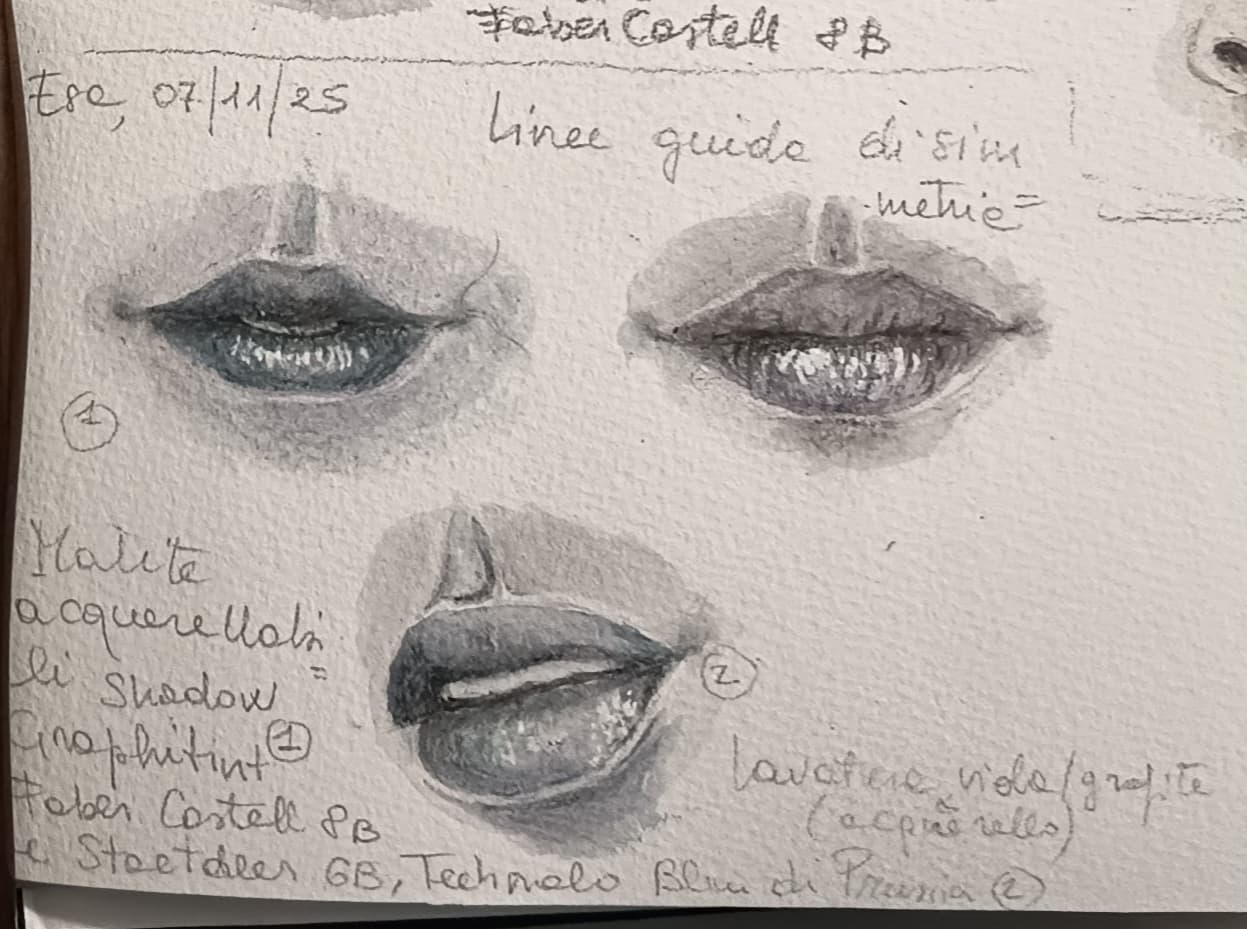 Faber Castell 8B
Ese, 07/11/25
Linee guida di sim
metrie =
1
Matite
acquerellabi =
li Shadow
Graphitint 1
2
Lavatura viola/grafite
(acquerello)
Faber Castell 8B
e Staetdler 6B, Technalo Blu di Prussia (2)